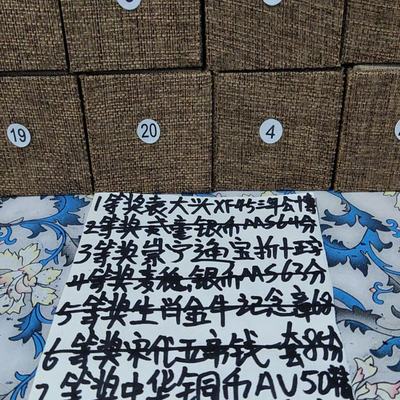 19
20
4
1等奖袁大头XF45三年
2等奖贰毫银币MS64分
3等奖崇宁通宝折十
4等奖麦穗银币MS62分
5等奖生肖金牛纪念章68分
6等奖宋代五帝钱一套85分
7等奖中华铜币AU50